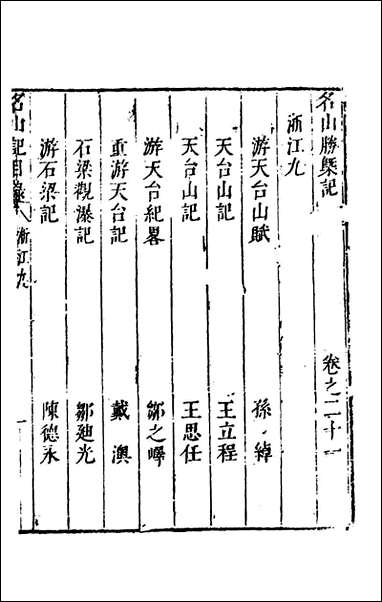 名山勝槩記 卷之二十一
浙江九
游天台山賦 孫綽
天台山記 王立程
天台山記 王思任
游天台紀畧 鄒之嶧
重游天台記 戴澳
石梁觀瀑記 鄒迪光
游石梁記 陳德永
名山記目錄 浙江九 一